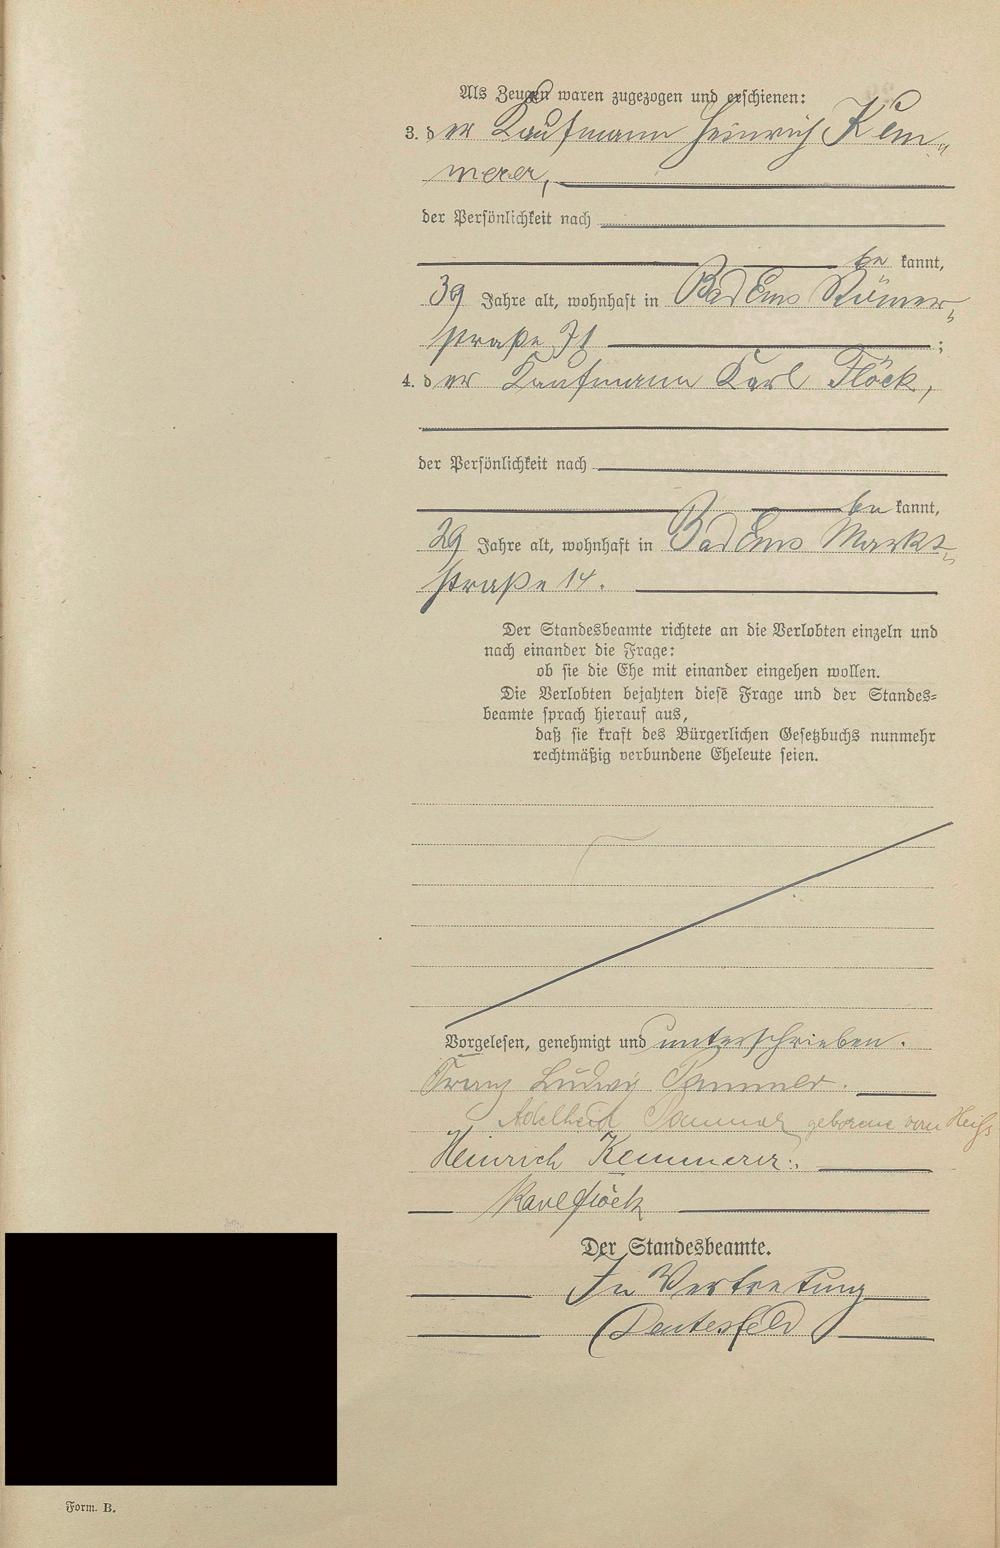 Als Zeugen waren zugezogen und erschienen:
3. der Kaufmann Heinrich Kem„
merer,
der Persönlichkeit nach
be kannt,
39 Jahre alt, wohnhaft in Bad Ems Römer„
straße 71 ;
4. der Kaufmann Karl Flöck,
der Persönlichkeit nach
be kannt,
29 Jahre alt, wohnhaft in Bad Ems Markt„
straße 14.
Der Standesbeamte richtete an die Verlobten einzeln und
nach einander die Frage:
ob sie die Ehe mit einander eingehen wollen.
Die Verlobten bejahten diese Frage und der Standes=
beamte sprach hierauf aus,
daß sie kraft des Bürgerlichen Gesetzbuchs nunmehr
rechtmäßig verbundene Eheleute seien.
Vorgelesen, genehmigt und unterschrieben.
Franz Ludwig
Adelheid geborene von
Heinrich Kemmerer.
Karl Flöck
Der Standesbeamte.
In Vertretung
Form. B.